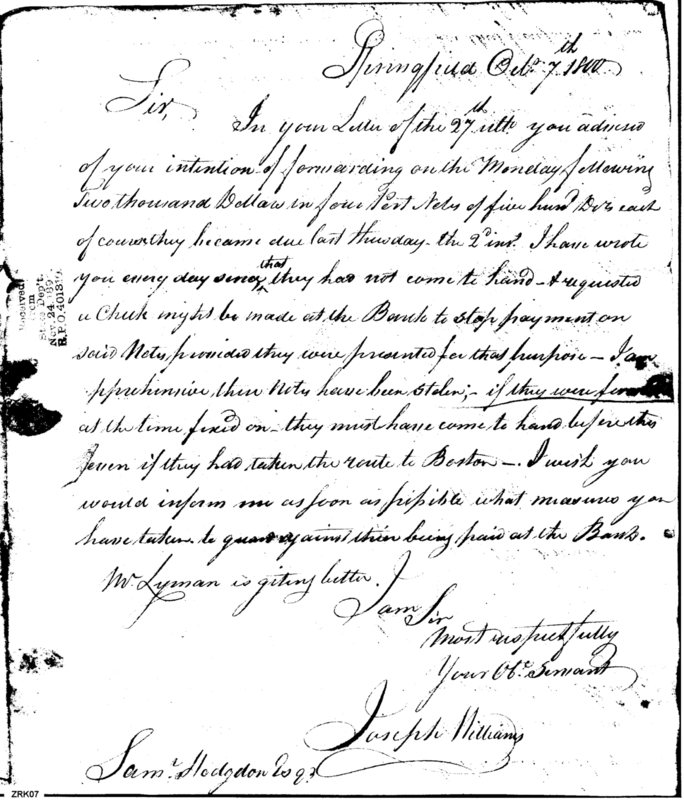 Springfield Octr. 7th 1800
Sir,
In your Letter of the 27th ulto. you advised
of your intention of forwarding on the Monday following
Two thousand Dollars in four Post Notes of five hund Do.s each
of course they became due last thursday - the 2d inst. I have wrote
you every day since that they had not come to hand - & requested
a Check might be made at the Bank to stop payment on
said Notes, provided they were presented for that purpose - I am
apprehensive these Notes have been stolen; - if they were
at the time fixed on - they must have come to hand before this
even if they had taken the route to Boston -. I wish you
would inform me as soon as possible what measures you
have taken to guard against their being paid at the Bank.
Mr. Lyman is giting better.
I am Sir
Most respectfully
Your Obt. Servant
Joseph Williams
Saml. Hodgdon Esqr.
Received
from
State Dep't.
Nov. 24, 189
R.P.O. 40139
ZRK07